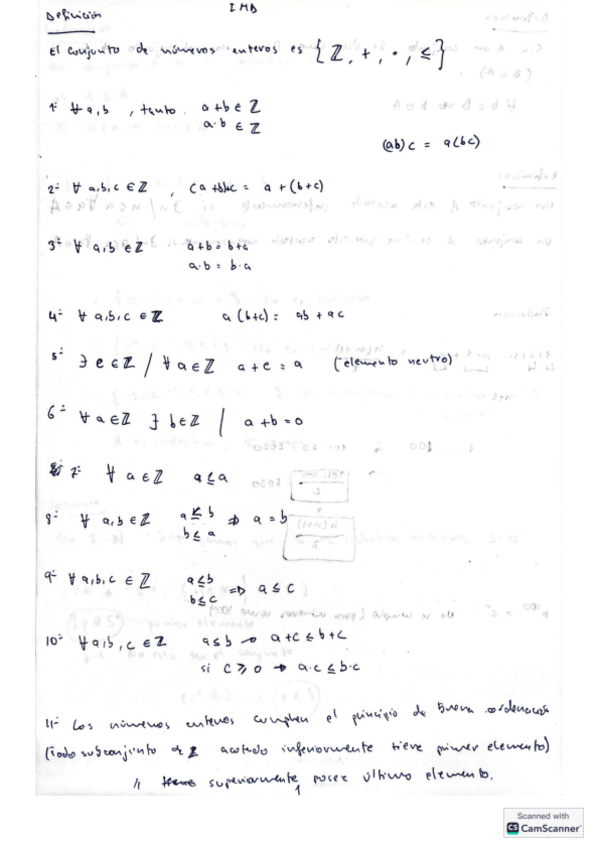 Definición
IMD
El conjunto de números enteros es { ℤ, +, ·, ≤ }
1- ∀ a,b , tanto a+b ∈ ℤ
a·b ∈ ℤ
(ab)c = a(bc)
2- ∀ a,b,c ∈ ℤ , (a+b)+c = a+(b+c)
3- ∀ a,b ∈ ℤ a+b = b+a
a·b = b·a
4- ∀ a,b,c ∈ ℤ a(b+c) = ab + ac
5- ∃ e ∈ ℤ / ∀ a ∈ ℤ a+e = a (elemento neutro)
6- ∀ a ∈ ℤ ∃ b ∈ ℤ / a+b = 0
7- ∀ a ∈ ℤ a ≤ a
8- ∀ a,b ∈ ℤ a ≤ b ⇒ a = b
b ≤ a
9- ∀ a,b,c ∈ ℤ a ≤ b ⇒ a ≤ c
b ≤ c
10- ∀ a,b,c ∈ ℤ a ≤ b → a+c ≤ b+c
si c ≥ 0 → a·c ≤ b·c
11- Los números enteros cumplen el principio de buena ordenación
(Todo subconjunto de ℤ acotado inferiormente tiene primer elemento)
// superiormente posee último elemento.
1
Scanned with
CS CamScanner